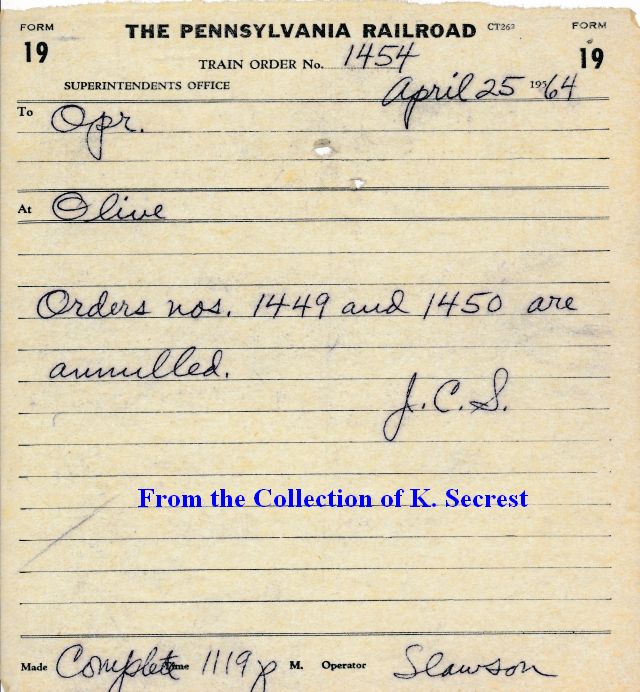 FORM THE PENNSYLVANIA RAILROAD CT262 FORM
19 TRAIN ORDER No. 1454 19
SUPERINTENDENTS OFFICE April 25 19564
To Opr.
At Olive
Orders nos. 1449 and 1450 are
annulled.
J.C.S.
From the Collection of K. Secrest
Made Complete Time 1119 p M. Operator Slawson